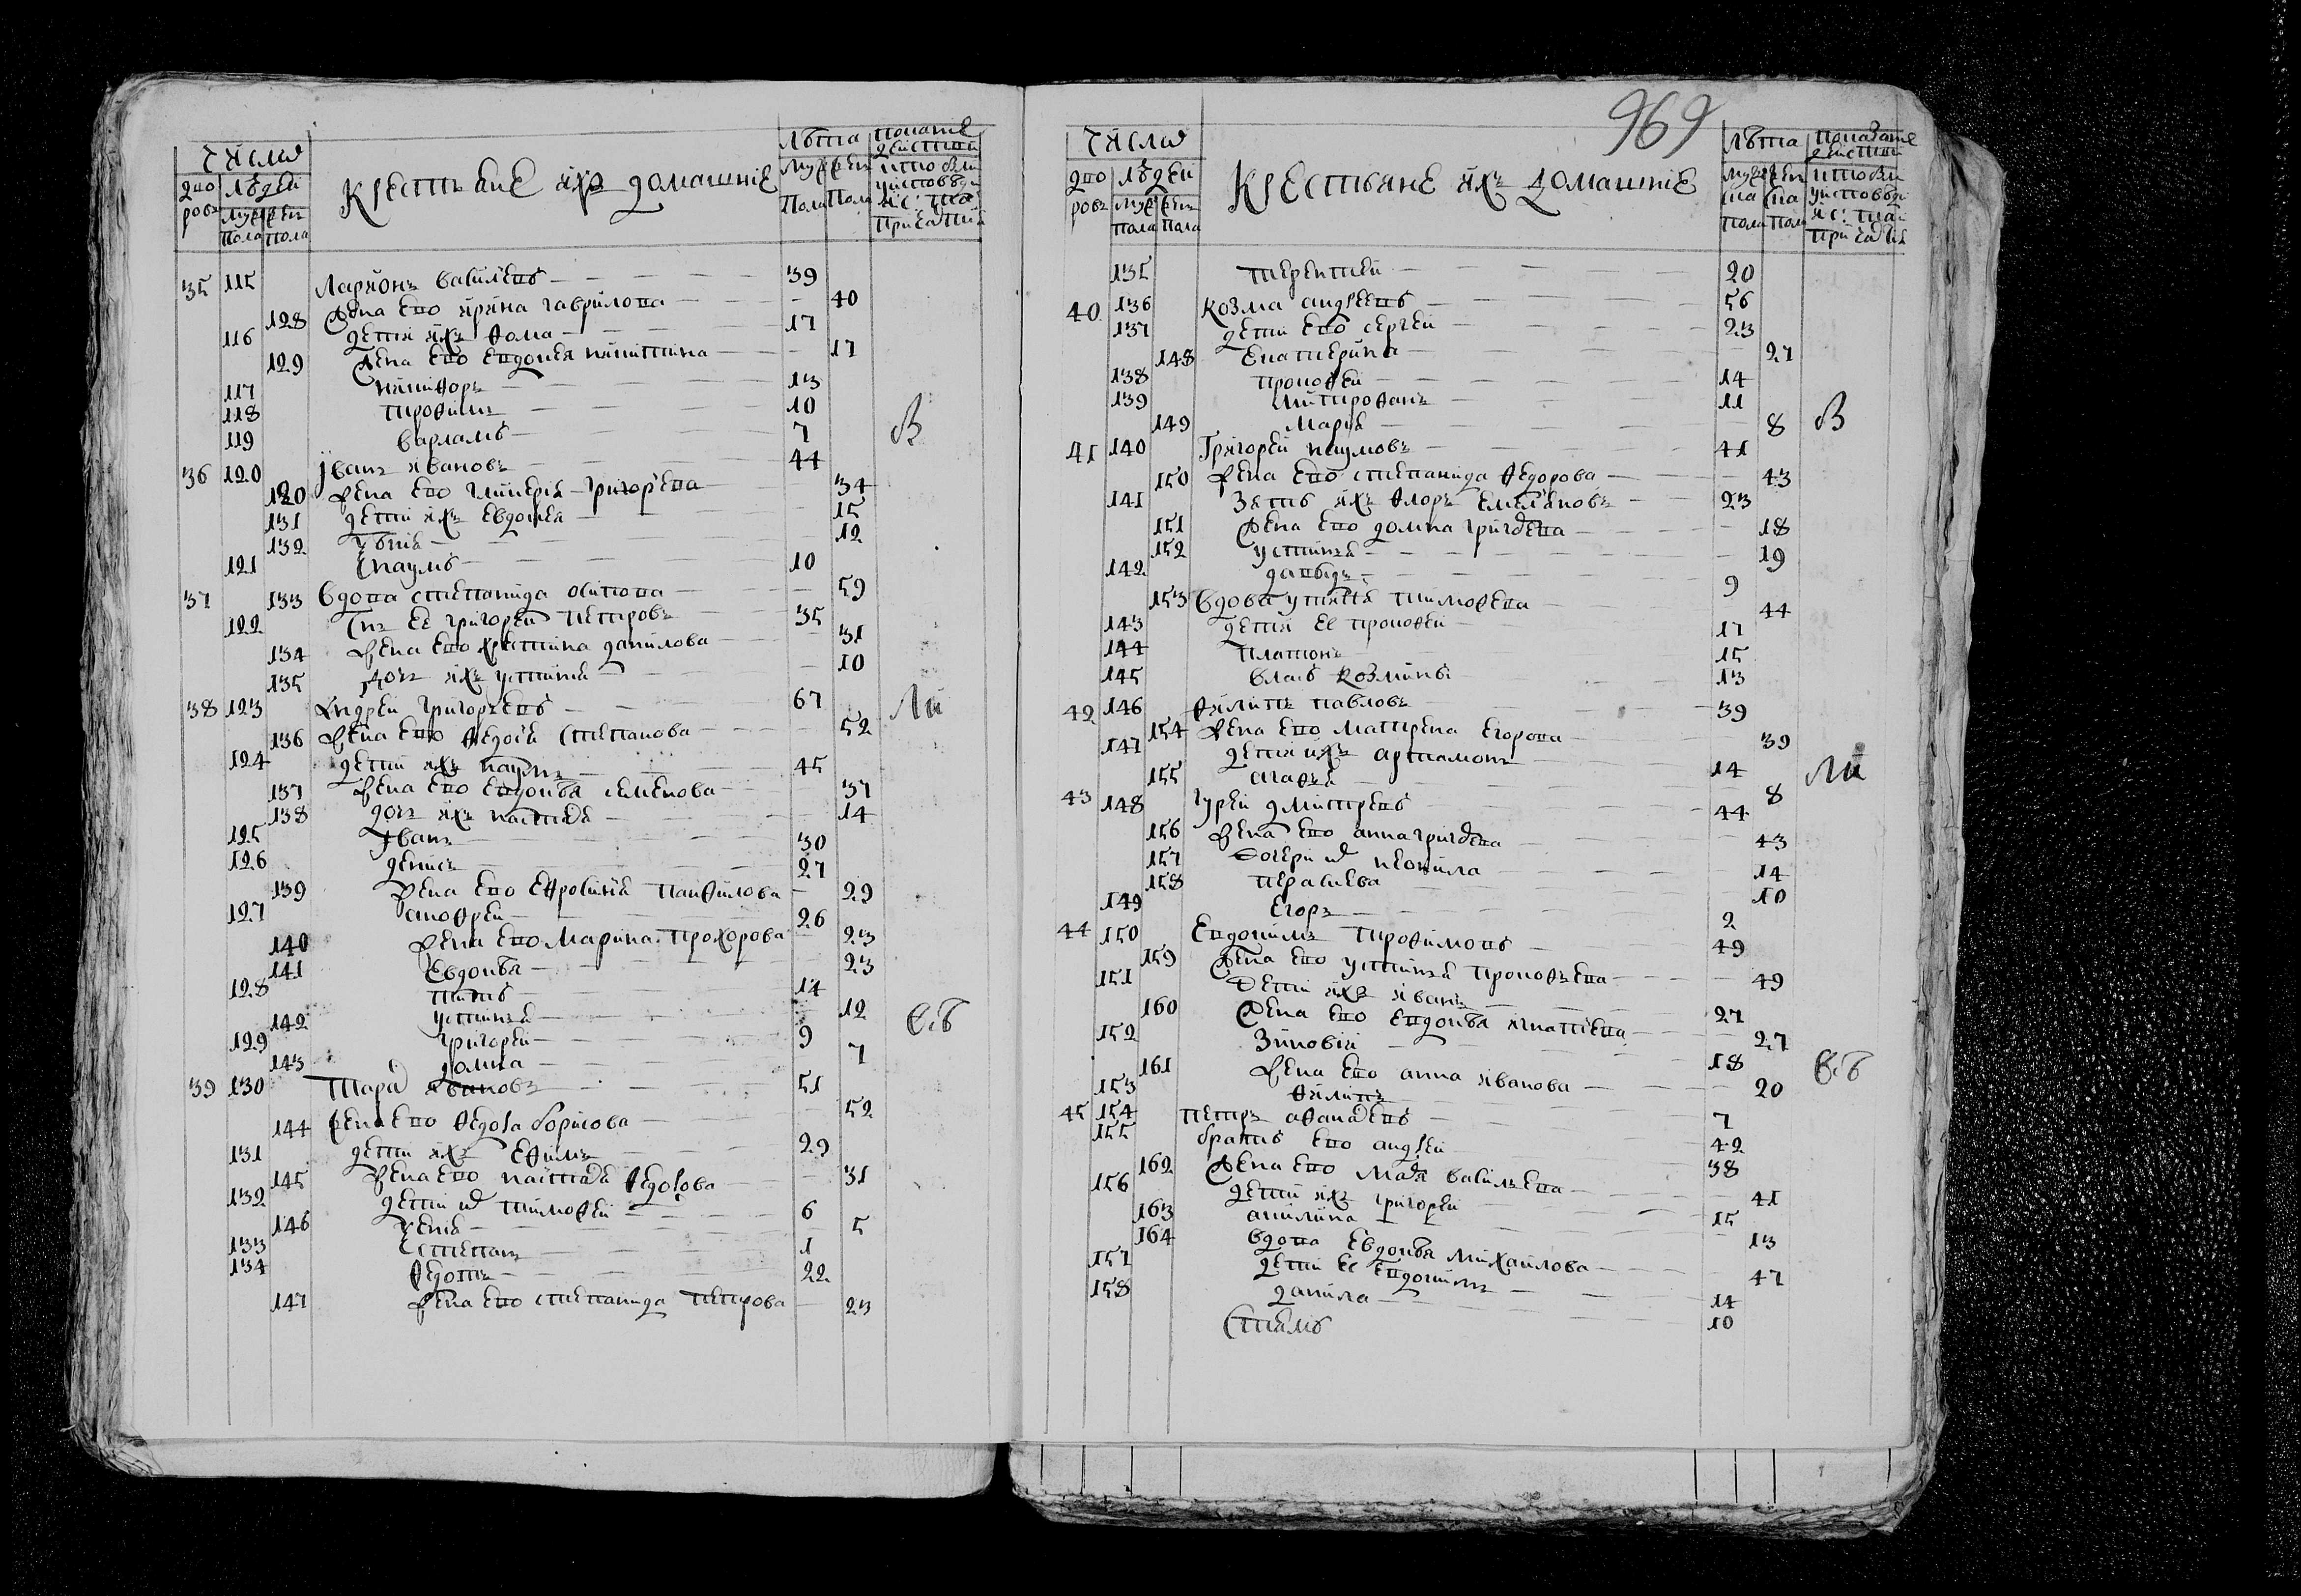 969
Числа
дво
ровъ
Людей
муж
жен
пола
пола
Крестьяне ихъ домашніе
Лѣта
муж
жен
пола
пола
35 115 Ларионъ васильевъ 39
128 жена ево ирина гаврилова 40
116 дети ихъ фома 17
129 жена ево евдокея никитина 17
117 никифоръ 13
118 трофимъ 10
119 варламъ 7
36 120 Иванъ ивановъ 44
130 жена ево гликерія григорьева 34
131 дети ихъ евдокея 15
132 12
121 наумъ 10
37 133 вдова степанида осипова 59
122 сынъ ее григорей петровъ 35
134 жена ево христина данилова 31
135 дочь ихъ устинія 10
38 123 Андрей григорьевъ 67
136 жена ево федосія степанова 52
124 дети ихъ наумъ 45
137 жена ево евдокія семенова 37
138 дочь ихъ настасія 14
125 Иванъ 30
126 денисъ 27
139 жена ево ефросинія панфилова 29
127 анофрей 26
140 жена ево марина прохорова 23
141 Евдокія 23
128 титъ 14
142 устинья 12
129 григорей 9
143 домна 7
39 130 Тарас ивановъ 51
144 жена ево федора борисова 52
131 дети ихъ ефимъ 29
145 жена ево настася федорова 31
132 дети их тимофей 6
146 5
133 степанъ 1
134 федотъ 22
147 жена ево степанида петрова 23
Числа
дво
ровъ
Людей
муж
жен
пола
пола
Крестьяне ихъ домашніе
Лѣта
муж
ска
пола
жен
ска
пола
135 терентей 20
40 136 Козма андреевъ 56
137 дети ево сергей 23
148 екатерина 27
138 прокофей 14
139 митрофанъ 11
149 марія 8
41 140 Григорей наумовъ 41
150 жена ево степанида федорова 43
141 зять ихъ флоръ емельяновъ 23
151 жена ево домна григорева 18
152 устинья 19
142 давыдъ 9
153 вдова тимофеева 44
143 дети ее прокофей 17
144 платонъ 15
145 власъ козмины 13
42 146 филипъ павловъ 39
154 жена ево матрена егорова 39
147 дети ихъ артамонъ 14
155 агафья 8
43 148 гурей дмитревъ 44
156 жена ево анна григорева 43
157 дочери их неонила 14
158 парасцева 10
149 егоръ 2
44 150 Евдокимъ трофимовъ 49
159 жена ево устинья прокофьева 49
151 дети ихъ иванъ 27
160 жена ево евдокія игнатіева 27
152 зиновій 18
161 жена ево анна иванова 20
153 филипъ 7
45 154 петръ афанасевъ 42
155 братъ ево андрей 38
162 жена ево марія васильева 41
156 дети ихъ григорей 15
163 акилина 13
164 вдова евдокія михайлова 47
157 дети ее евдокимъ 14
158 данила 10